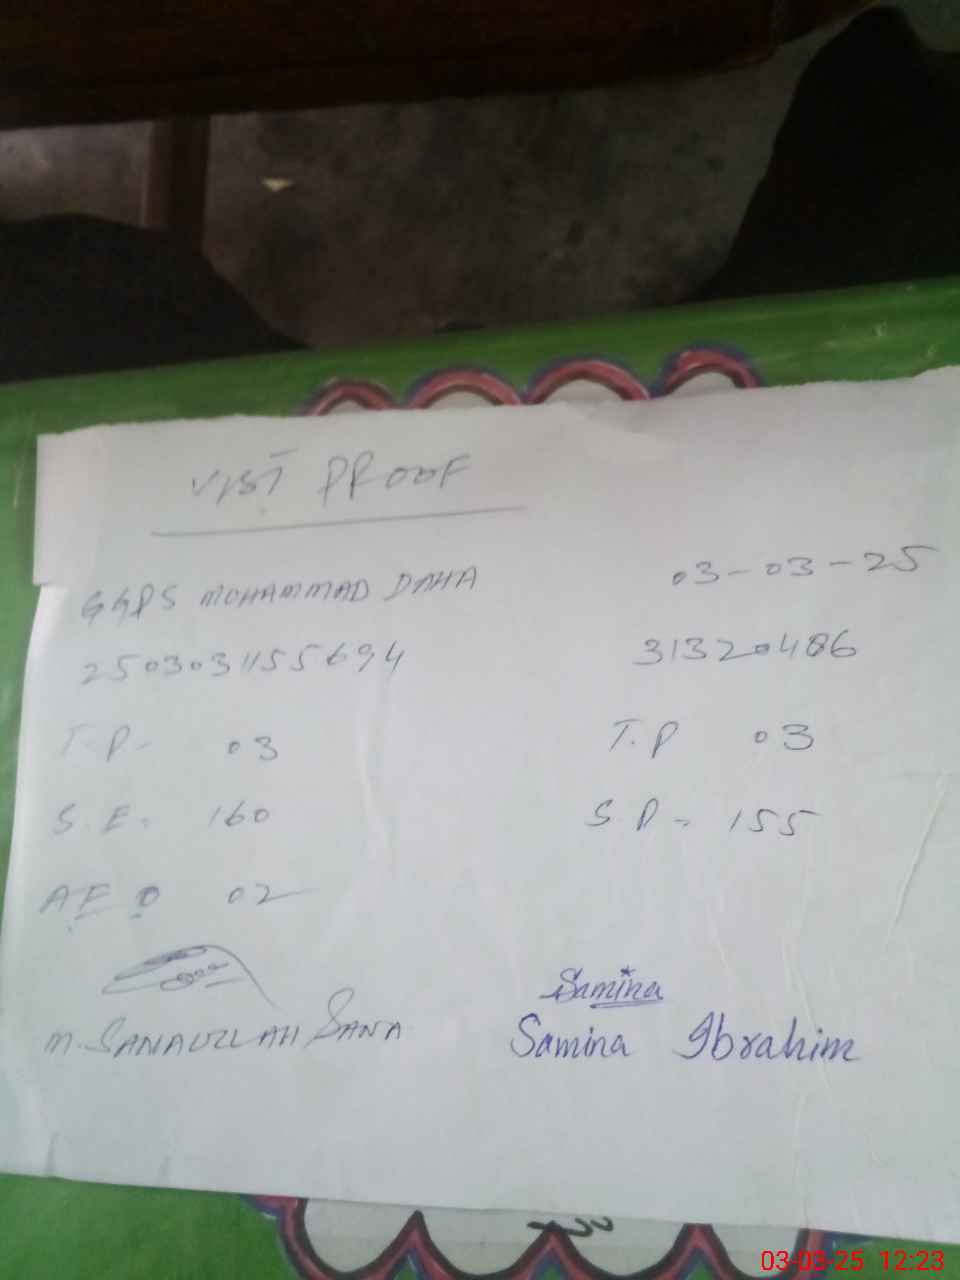 VIST PROOF
GGPS MOHAMMAD DAHA 03-03-25
250303155694 31320486
T.P- 03 T.P 03
S.E. 160 S.P- 155
AEO 02
Samina
M. SANAULLAH SANA Samina Ibrahim
03-03-25 12:23